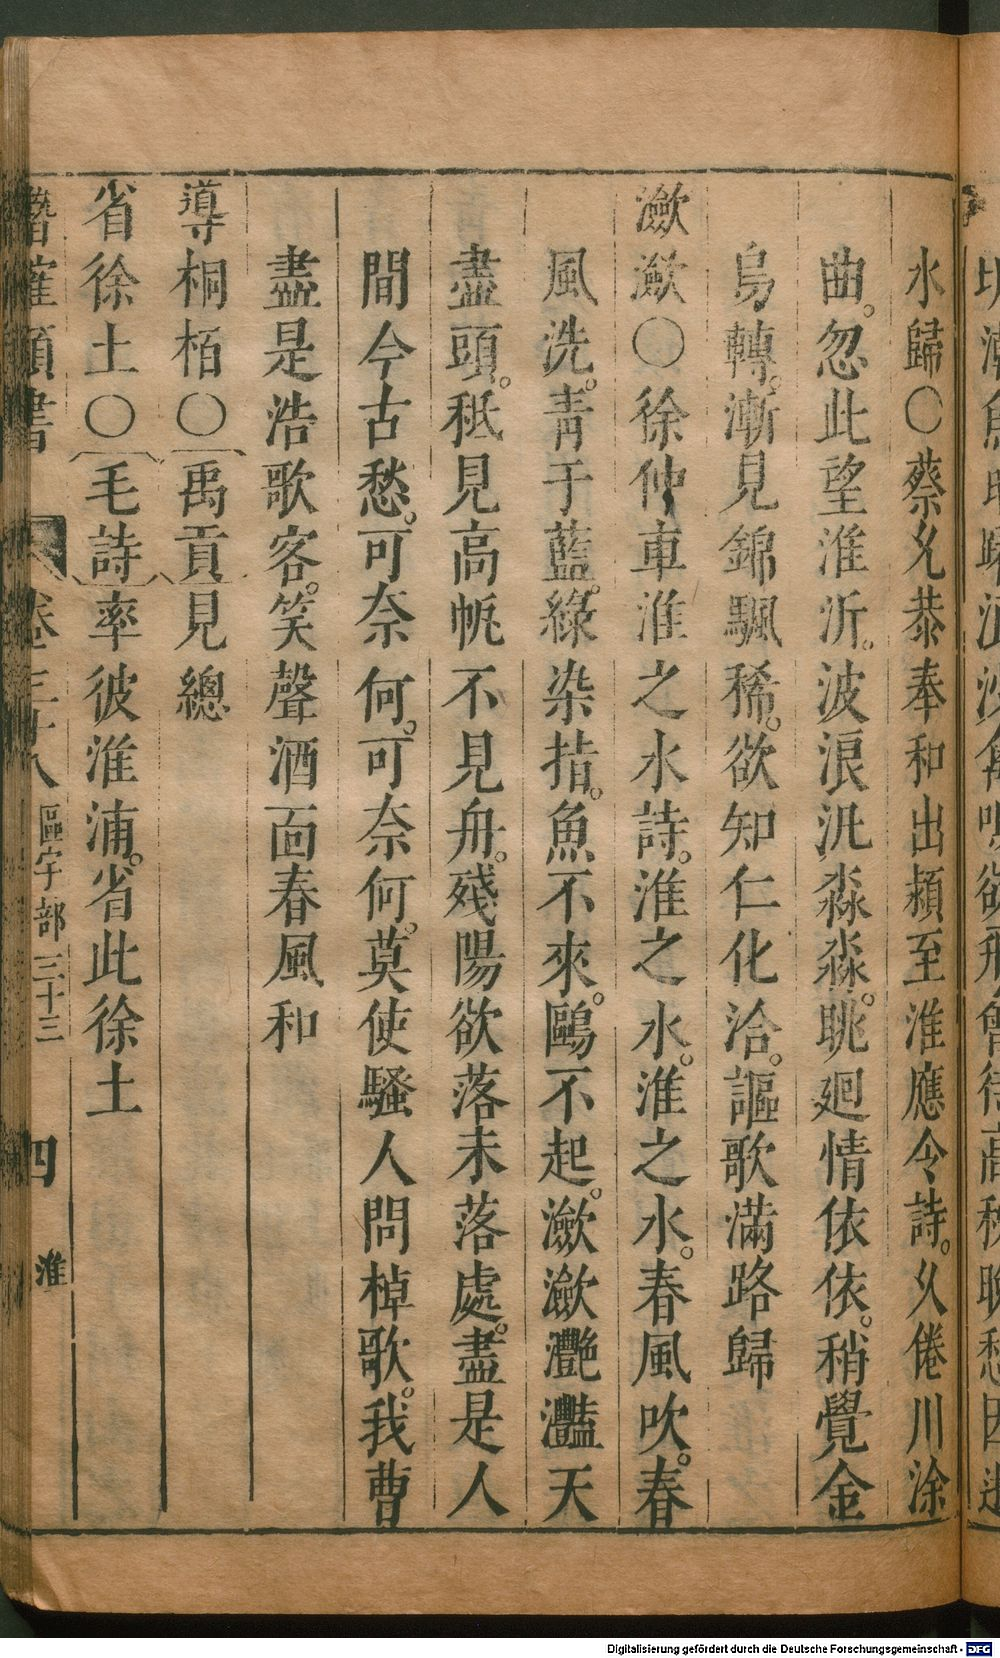 水歸〇蔡允恭奉和出潁至淮應令詩。久倦川涂
曲。忽此望淮沂。波浪汎淼淼。眺迴情依依。稍覺金
烏轉。漸見錦颿稀。欲知仁化洽。謳歌滿路歸
瀲瀲〇徐仲車淮之水詩。淮之水。淮之水。春風吹。春
風洗。青于藍。綠染指。魚不來。鷗不起。瀲瀲灧灩天
盡頭。秪見高帆不見舟。殘陽欲落未落處。盡是人
間今古愁。可奈何。可奈何。莫使騷人問棹歌。我曹
盡是浩歌客。笑聲酒面春風和
導桐栢〇禹貢見總
省徐土〇毛詩率彼淮浦。省此徐土
潛確類書 卷三十八 區宇部三十三 四 淮
Digitalisierung gefördert durch die Deutsche Forschungsgemeinschaft - DFG